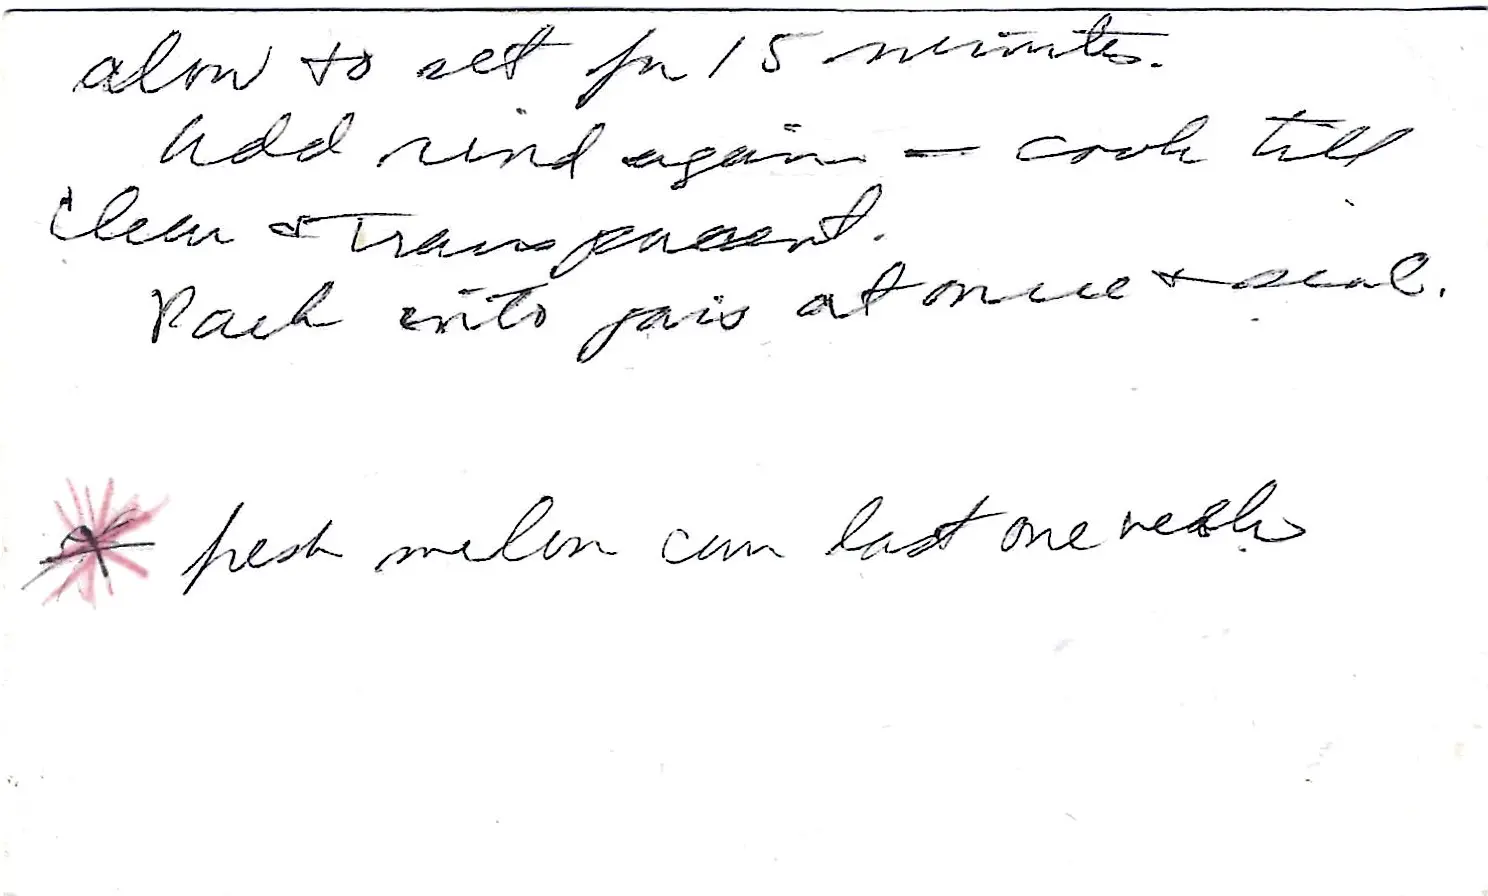 alow to set for 15 minutes.
Add rind again — cook till
clear & transparent.
Pack into jars at once + seal.
* fresh melon can last one week